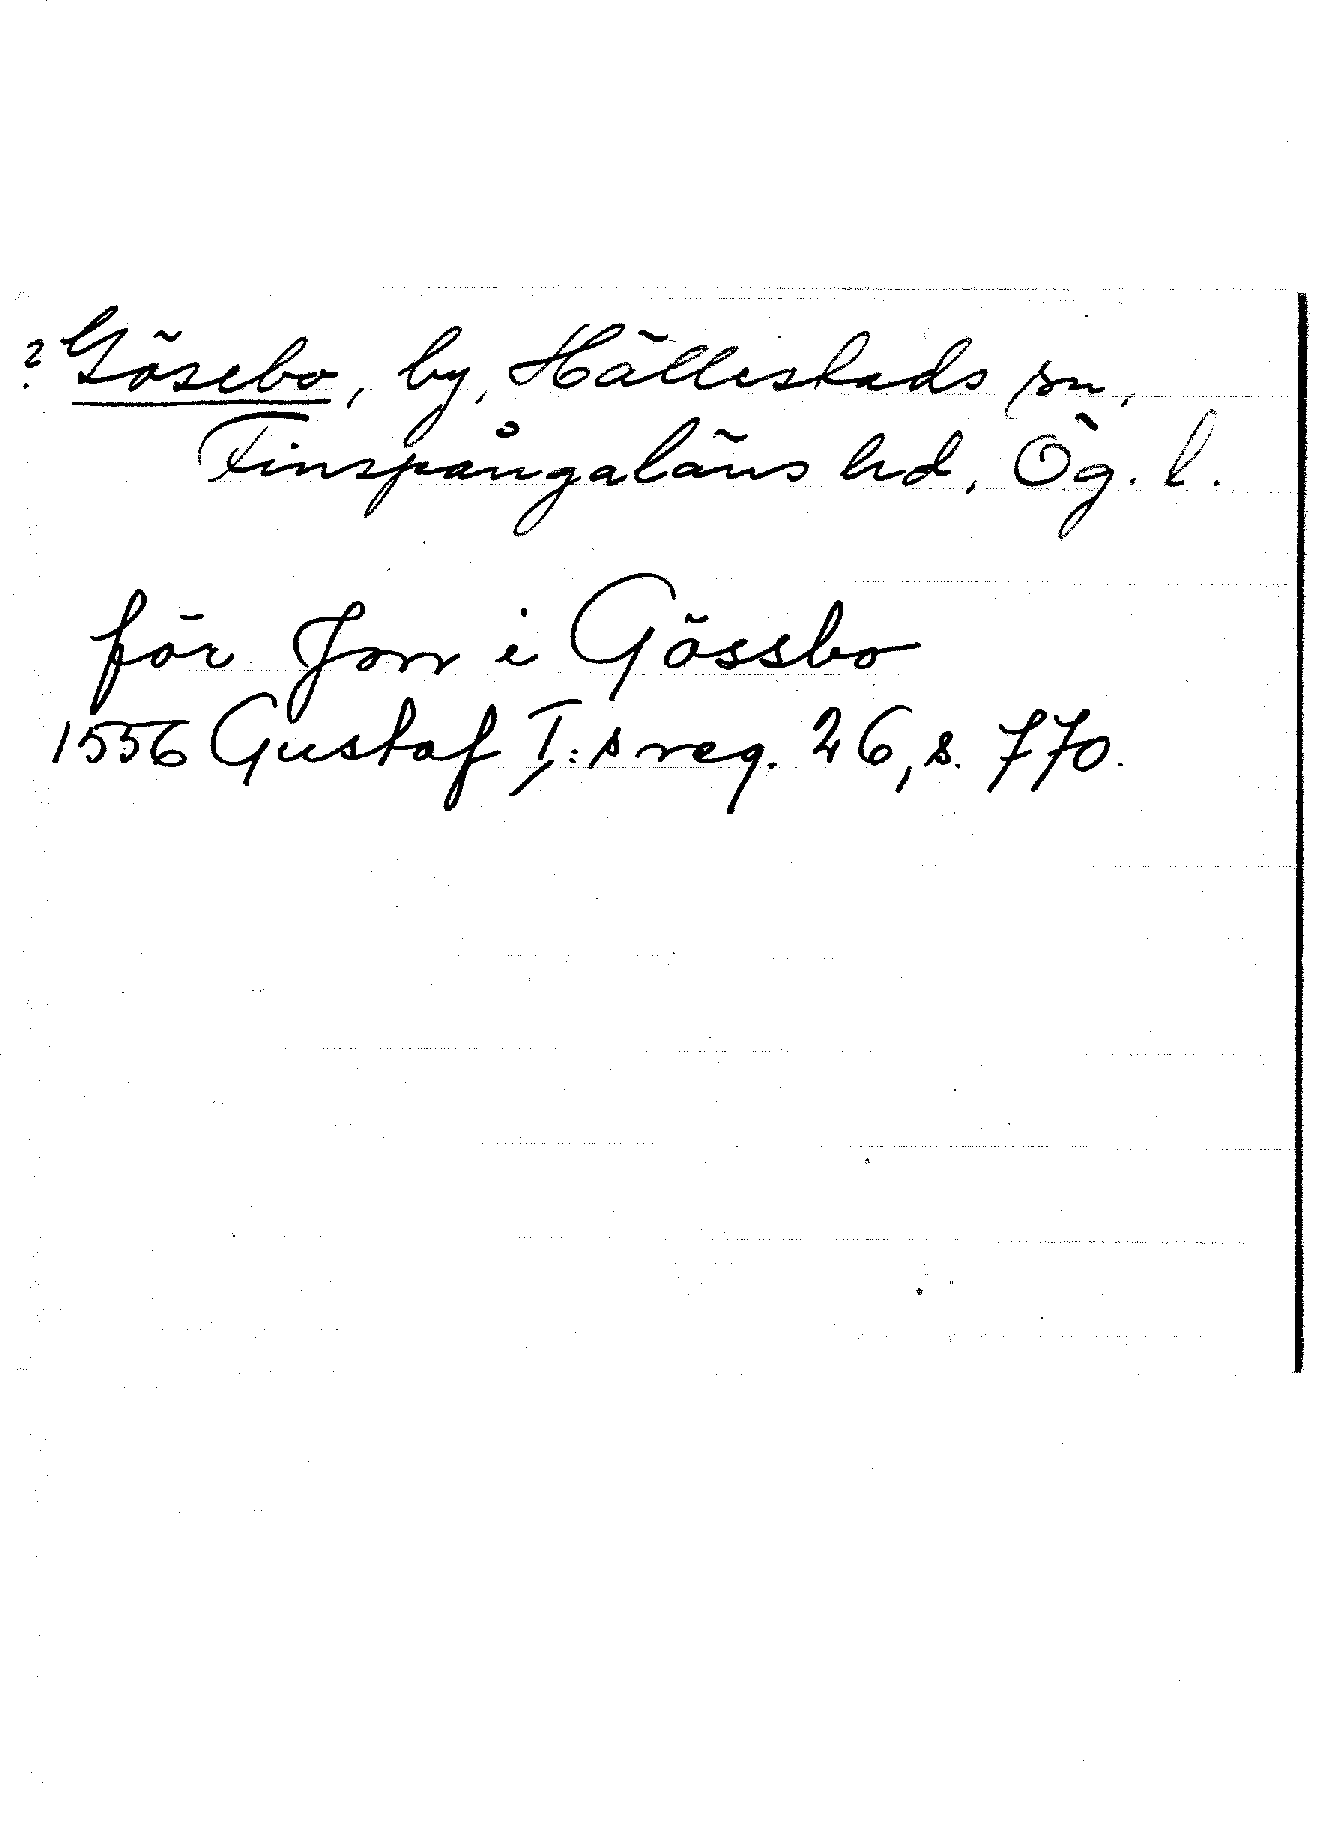 ? Gösebo, by, Hällestads sn,
Finspångaläns hd, Ög. l.
för Jon i Gössbo
1556 Gustaf I:s reg. 26, s. 770.